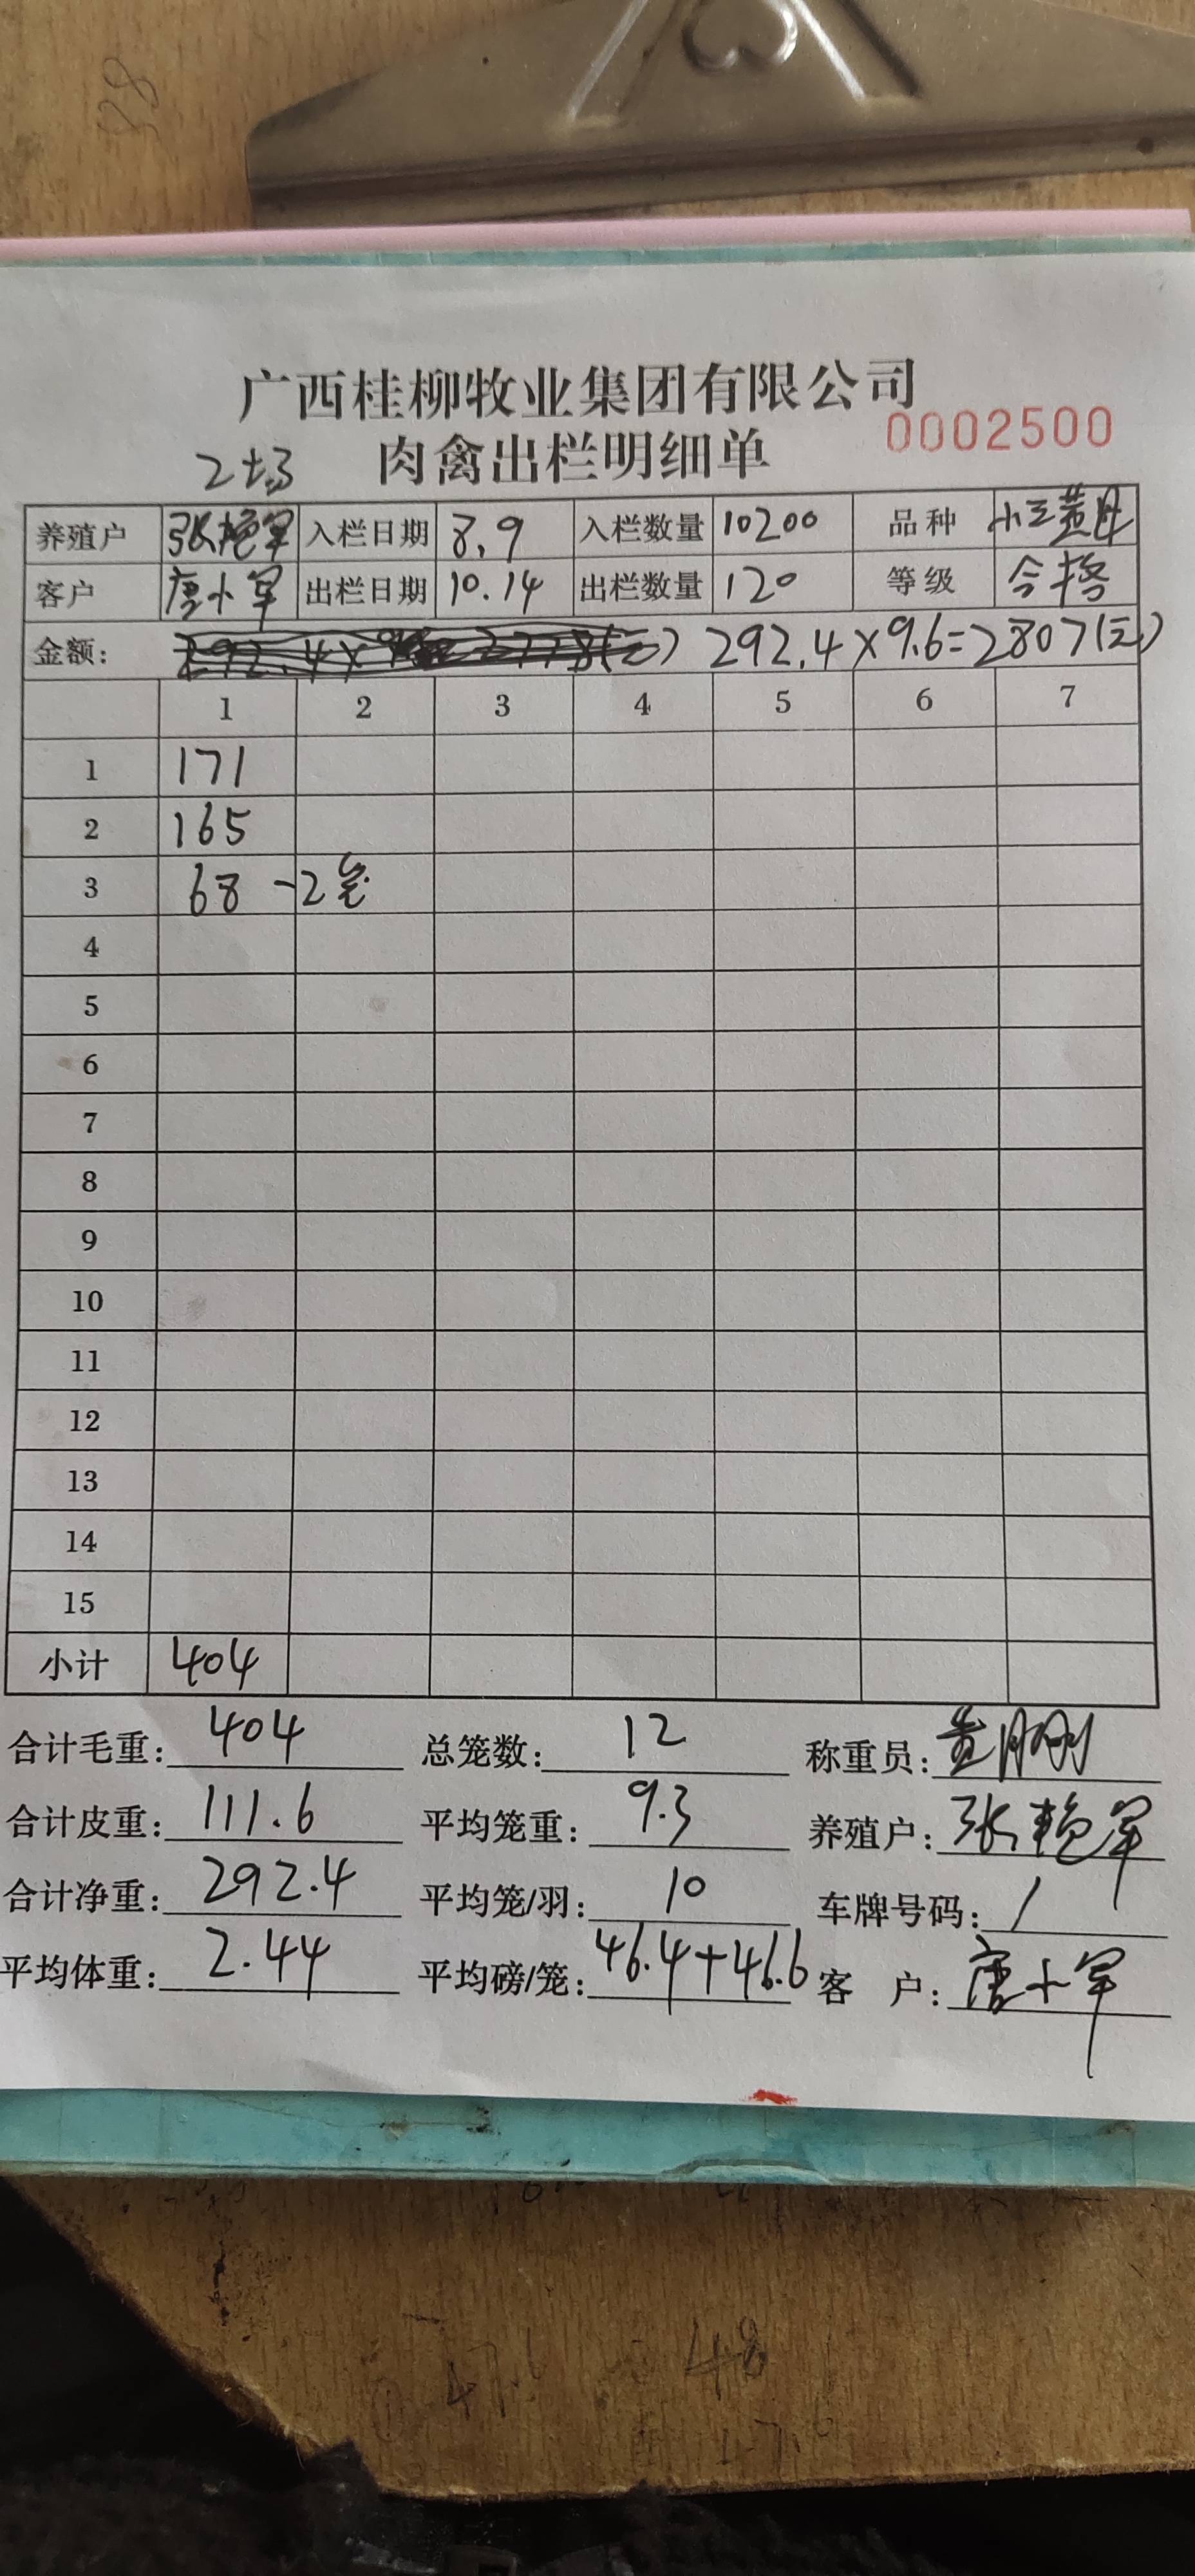 广西桂柳牧业集团有限公司
肉禽出栏明细单
0002500
2场
养殖户 张艳军 入栏日期 8.9 入栏数量 10200 品种
客户 唐小军 出栏日期 10.14 出栏数量 120 等级 合格
金额: 292.4×9.6=2807(元)
1 2 3 4 5 6 7
1 171
2 165
3 68 -2笼
4
5
6
7
8
9
10
11
12
13
14
15
小计 404
合计毛重: 404 总笼数: 12 称重员:
合计皮重: 111.6 平均笼重: 9.3 养殖户: 张艳军
合计净重: 292.4 平均笼/羽: 10 车牌号码: /
平均体重: 2.44 平均磅/笼: 46.4+46.6 客 户: 唐小军
48